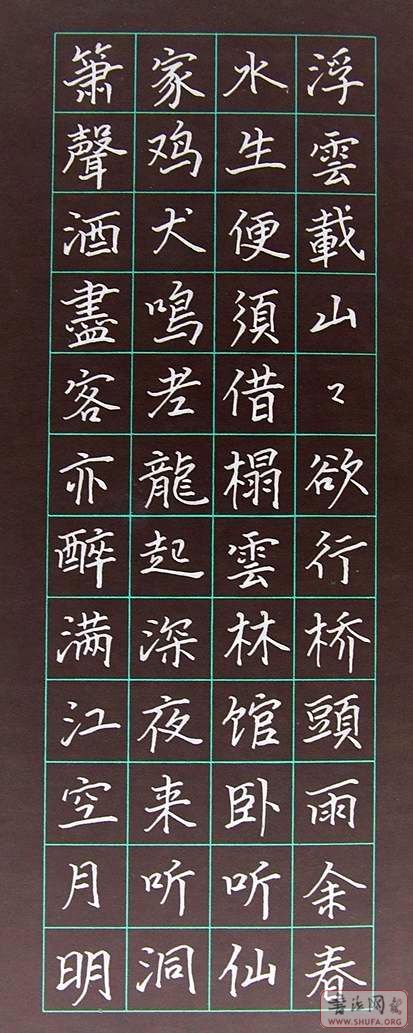 浮雲載山〻欲行桥頭雨余春
水生便須借榻雲林馆卧听仙
家鸡犬鳴老龍起深夜来听洞
箫聲酒盡客亦醉满江空月明
書法网
WWW.SHUFA.ORG